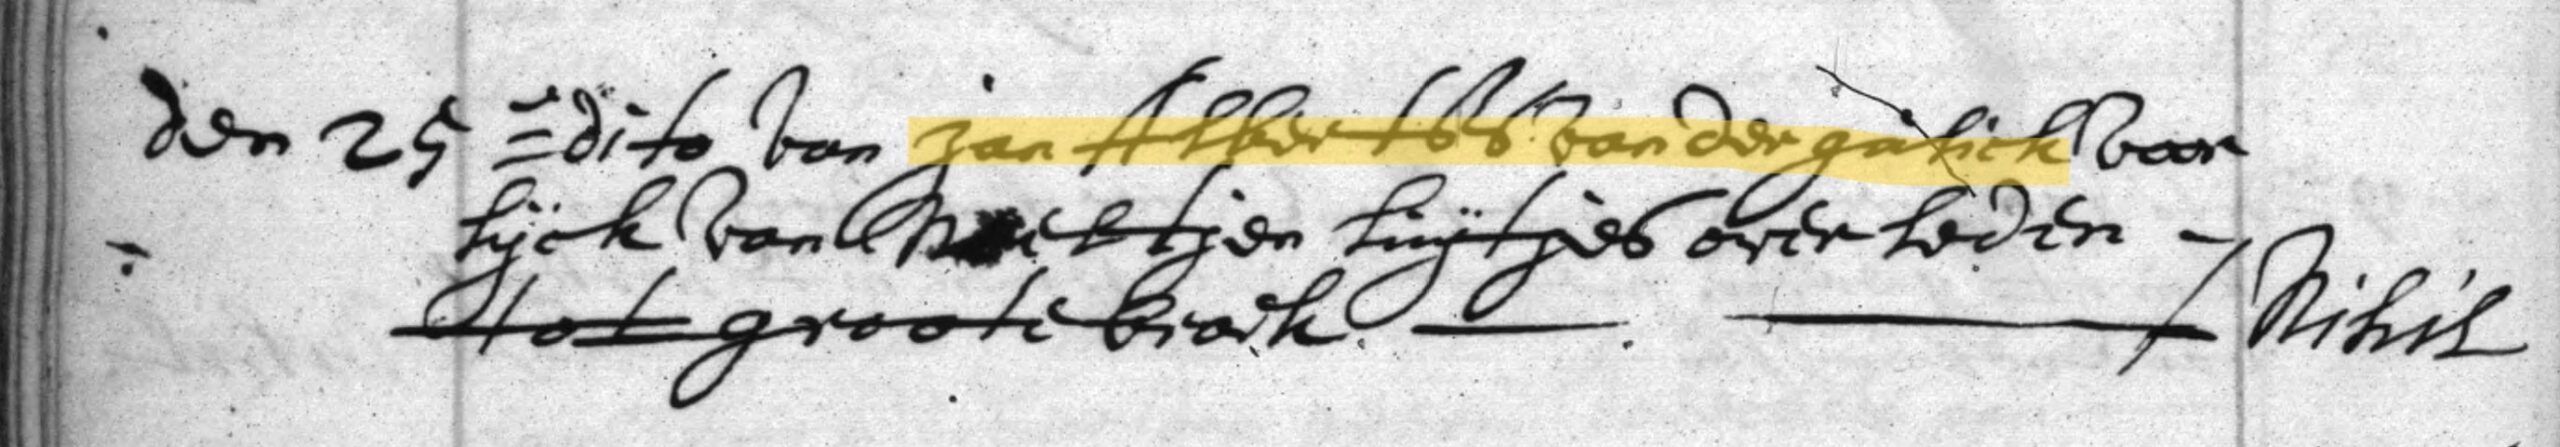 den 25 dito van jan Alberts van der galick voor
lijck van M ektjen luijtjes overleden -
tot groote broek Nihil